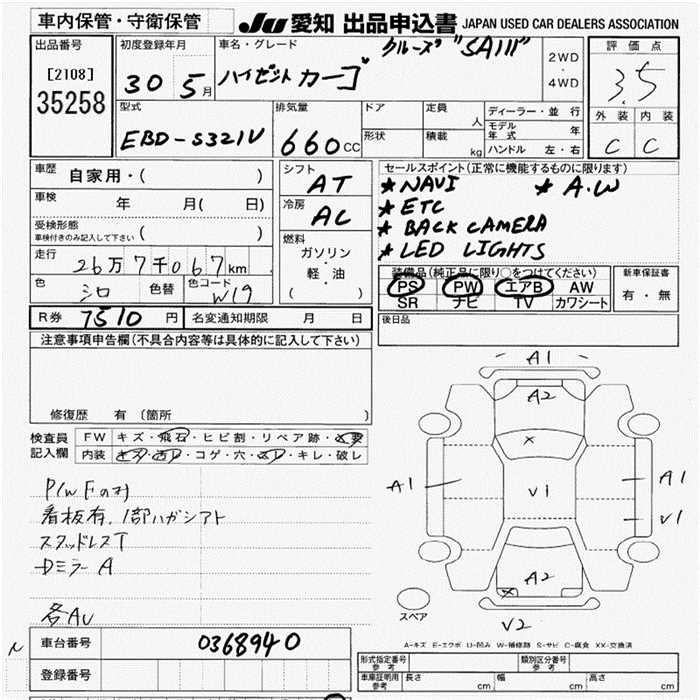 車内保管・守衛保管
JU 愛知 出品申込書 JAPAN USED CAR DEALERS ASSOCIATION
出品番号
[2108]
35258
初度登録年月
30 5月
車名・グレード
ハイゼット カーゴ クルーズ "SAIII"
2WD
・
4WD
評価点
3.5
外装 内装
C C
型式
EBD-S321V
排気量
660cc
ドア
形状
定員 人
積載 kg
ディーラー・並行
モデル年式 年
ハンドル 左・右
車歴 自家用・( )
車検 年 月( 日)
受検形態
車検付きのみ記入して下さい ( )
走行 26万7千067km
色 シロ 色替 色コード W19
シフト AT
冷房 AC
燃料
ガソリン
・
軽・油
( )
セールスポイント(正常に機能するものに限ります)
★NAVI ★A.W
★ETC
★BACK CAMERA
★LED LIGHTS
装備品(純正品に限り○をつけてください)
PS PW エアB AW
SR ナビ TV カワシート
新車保証書
有・無
R券 7510円 名変通知期限 月 日
後日品
注意事項申告欄(不具合内容等は具体的に記入して下さい)
修復歴 有 〔箇所 〕
検査員記入欄
FW キズ・飛石・ヒビ割・リペア跡・
内装 キズ・汚レ・コゲ・穴・・キレ・破レ
P/W Fのみ
看板有、1部ハガシアト
スタッドレスT
Dミラー A
各AU
A1
A2
×
A1 V1 A1
V1
A2
×
V2
スペア
A-キズ E-エクボ U-凹み W-補修跡 S-サビ C-腐食 XX-交換済
車台番号 0368940
登録番号
形式指定番号 参考
類別区分番号 参考
車庫証明用 参考 長さ cm 幅 cm 高さ cm